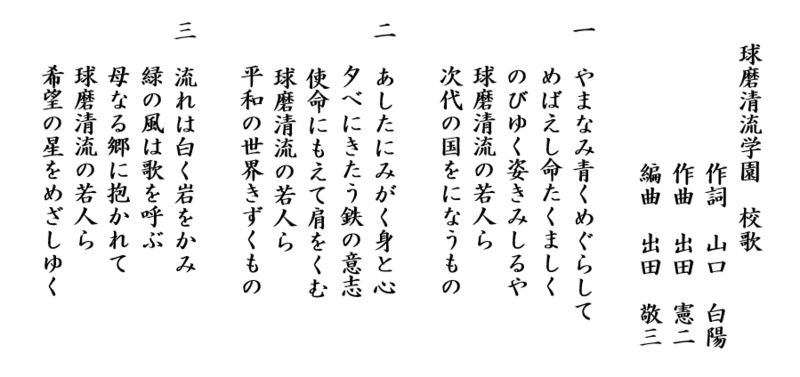 球磨清流学園　校歌
作詞　山口　白陽
作曲　出田　憲二
編曲　出田　敬三
一　やまなみ青くめぐらして
めばえし命たくましく
のびゆく姿きみしるや
球磨清流の若人ら
次代の国をになうもの
二　あしたにみがく身と心
夕べにきたう鉄の意志
使命にもえて肩をくむ
球磨清流の若人ら
平和の世界きずくもの
三　流れは白く岩をかみ
緑の風は歌を呼ぶ
母なる郷に抱かれて
球磨清流の若人ら
希望の星をめざしゆく